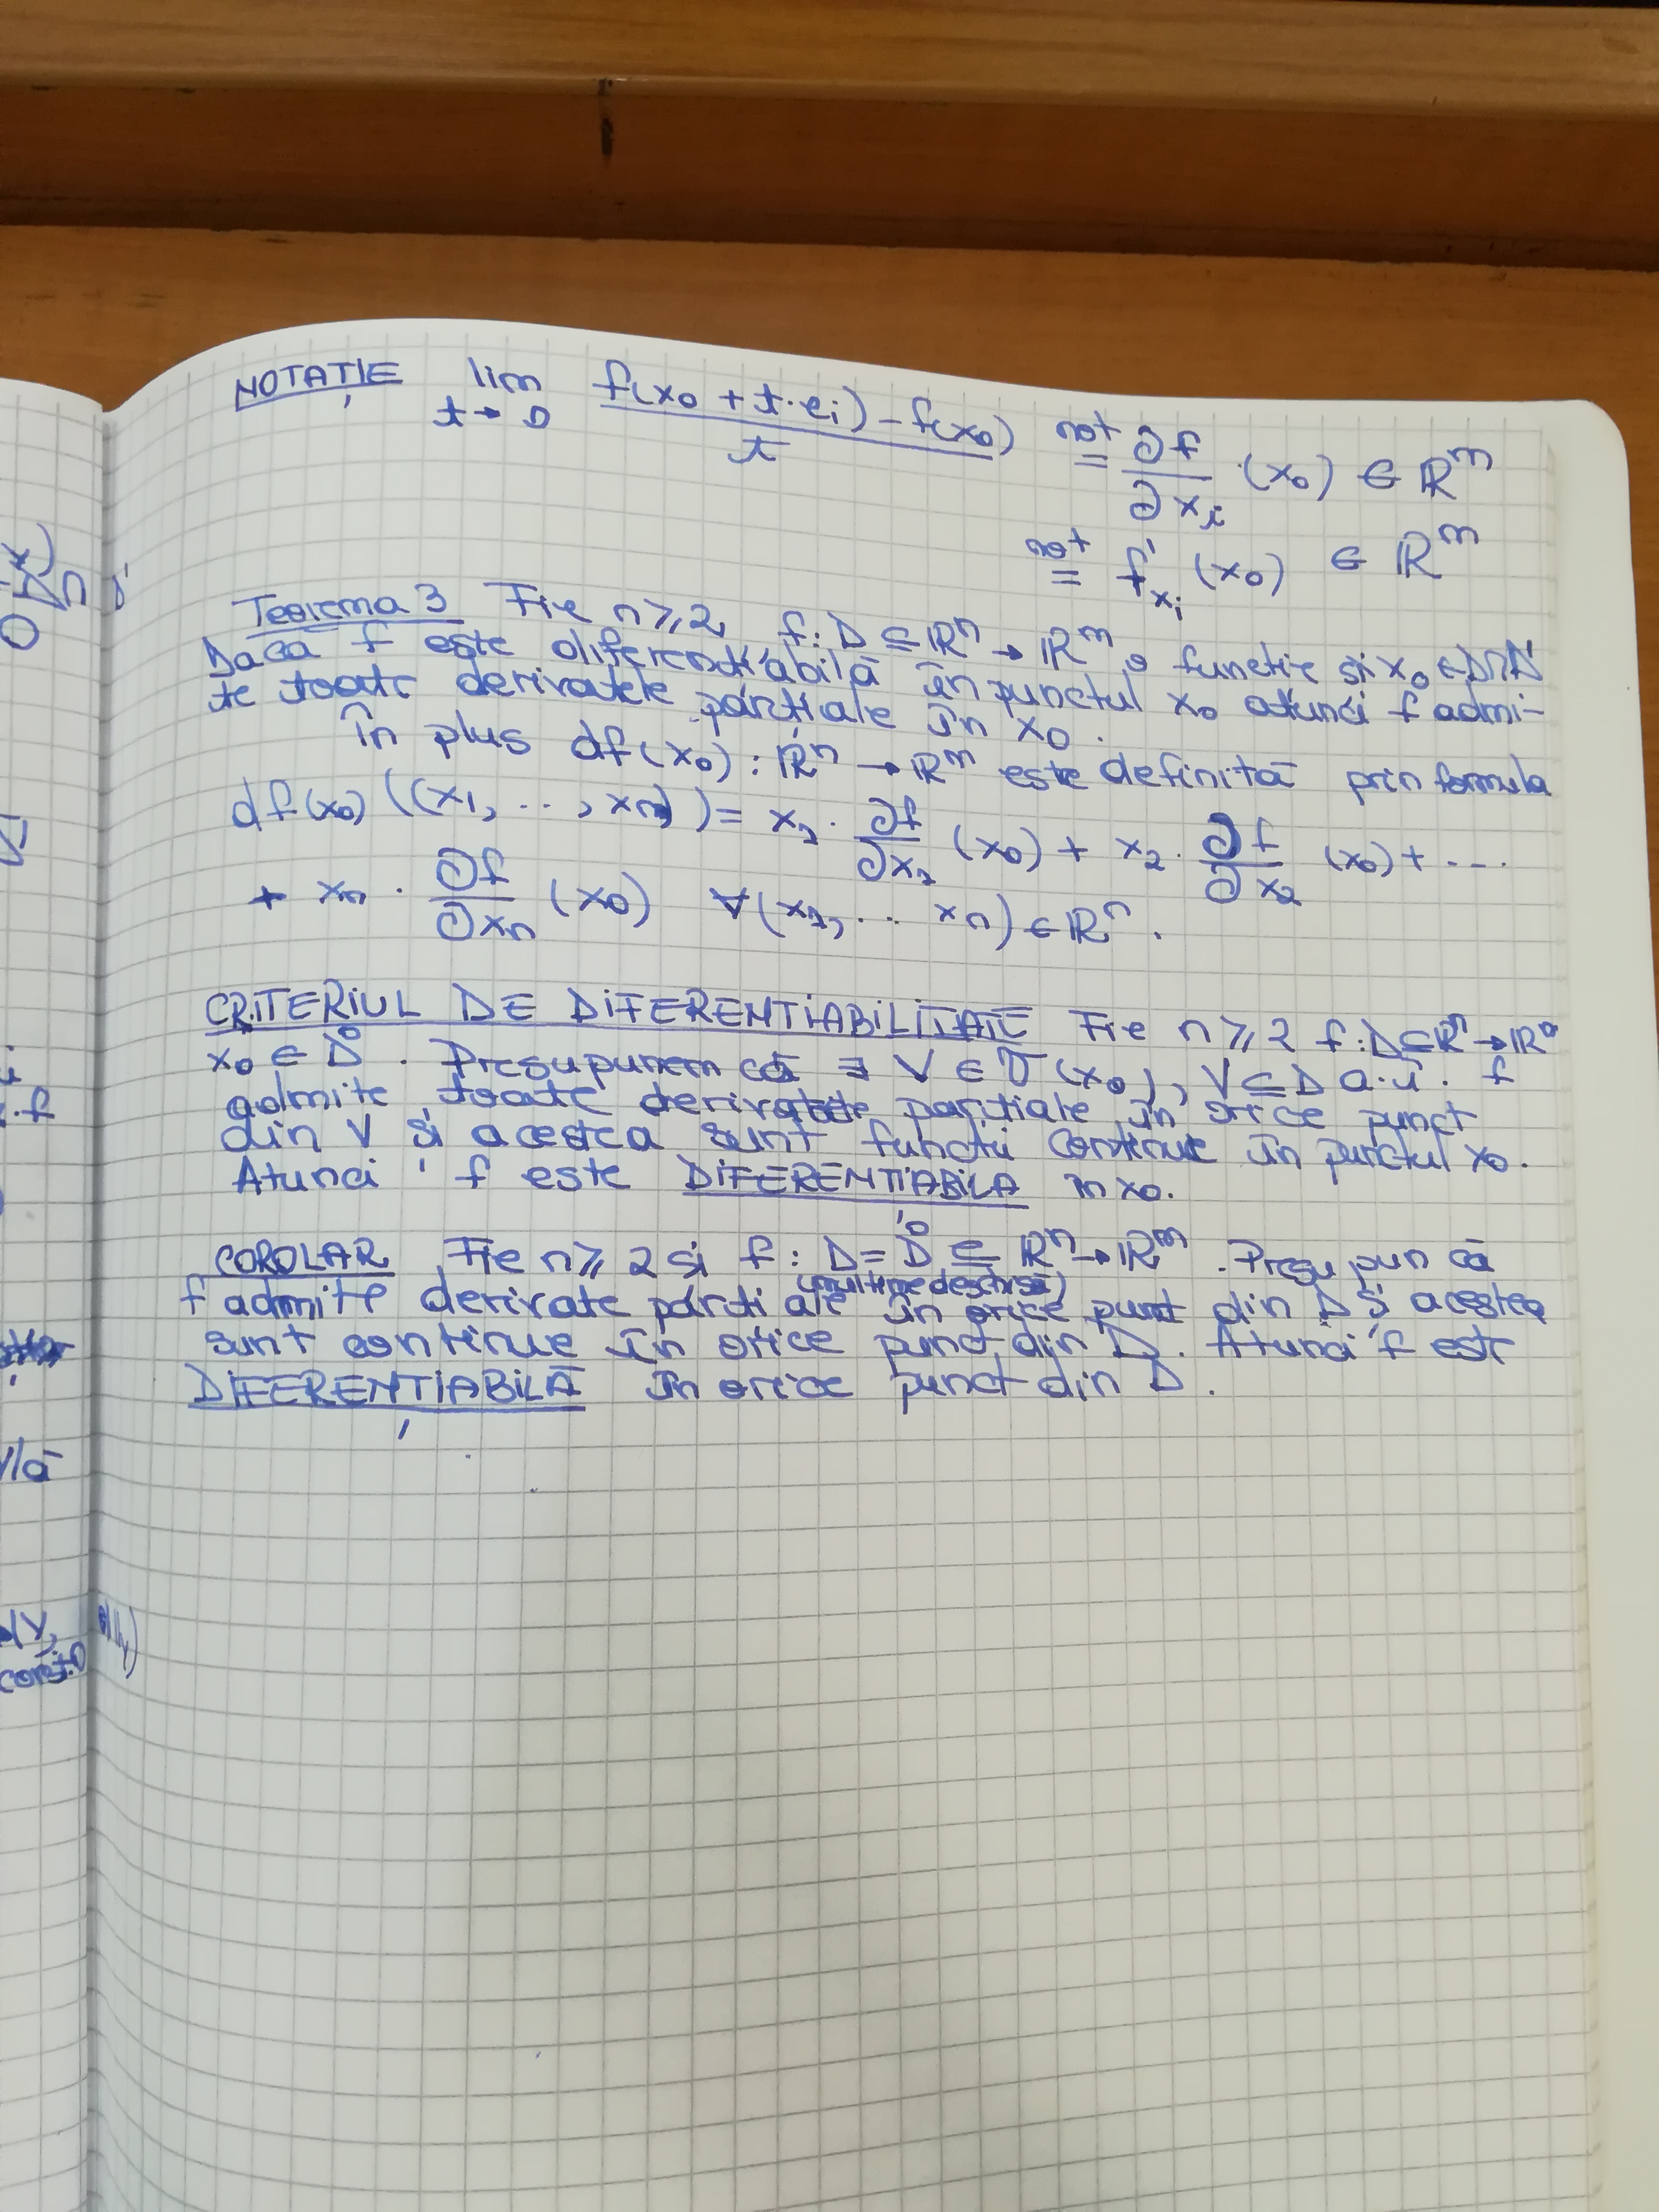 NOTAȚIE lim t→0 f(x0 + t·ei) - f(x0) / t not= ∂f/∂xi (x0) ∈ ℝ^m
not= f'xi (x0) ∈ ℝ^m
Teorema 3 Fie n ≥ 2, f: D ⊆ ℝ^n → ℝ^m o functie si x0 ∈ D∩D'
Daca f este diferențiabilă în punctul x0 atunci f admi-
te toate derivatele parțiale în x0.
În plus df(x0): ℝ^n → ℝ^m este definită prin formula
df(x0) ((x1, .., xn)) = x1 · ∂f/∂x1 (x0) + x2 · ∂f/∂x2 (x0) + ...
+ xn · ∂f/∂xn (x0) ∀(x1, .. xn) ∈ ℝ^n.
CRITERIUL DE DIFERENTIABILITATE Fie n ≥ 2 f: D ⊆ ℝ^n → ℝ^m
x0 ∈ D̊. Presupunem că ∃ V ∈ 𝒱(x0), V ⊆ D a.î. f
admite toate derivatele parțiale în orice punct
din V și acestea sunt funcții continue în punctul x0.
Atunci f este DIFERENȚIABILA in x0.
COROLAR Fie n ≥ 2 si f: D = D̊ ⊆ ℝ^n → ℝ^m. Presupun că
(multime deschisă)
f admite derivate parțiale în orice punct din D și acestea
sunt continue în orice punct din D. Atunci f este
DIFERENȚIABILĂ în orice punct din D.